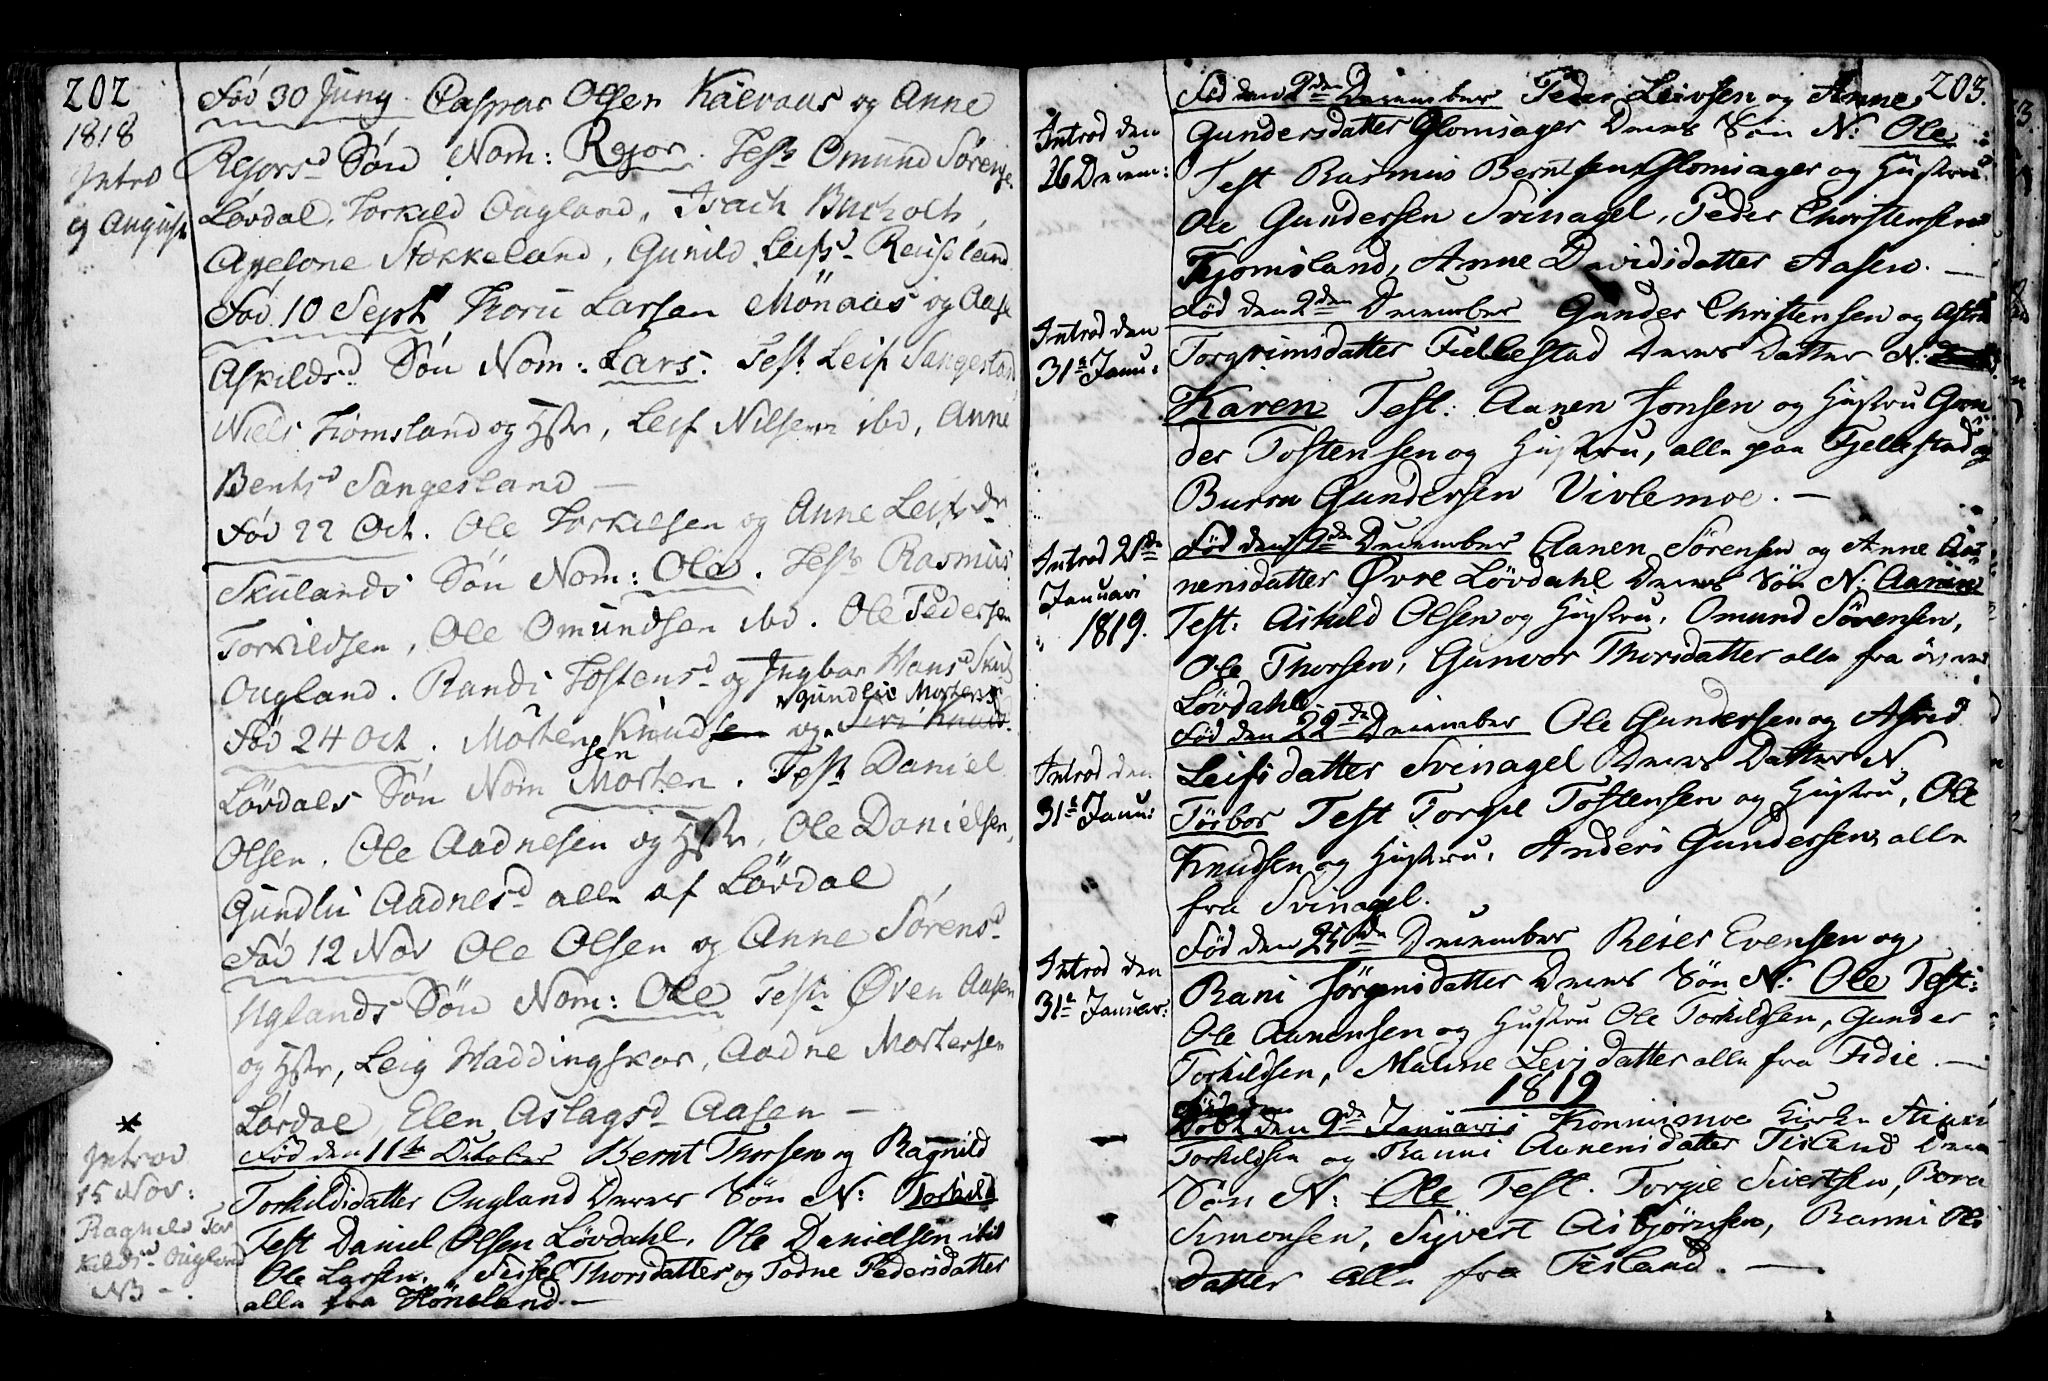 202
1818
Intro
9 August
Fød 30 Juny Caspar Olsen Kaeraas og Anne
Rejorsd Søn Nom: Rejor. Test Omund Sørens
Løvdal, Torkild Ougland, Isach Bucholt,
Axelone Stokkeland, Gunild Leifsd Reisland
Fød 10 Sept Thoru Larsen Mönaas og Aase
Askildsd Søn Nom: Lars. Test Leif Sangesland
Niels Tiomsland og Hstr, Leif Nilsen ibd, Anne
Bentsd Sangesland —
Fød 22 Oct. Ole Torkelsen og Anne Leifsdr
Skulands Søn Nom: Ole. Test Rasmus
Torkildsen, Ole Omundsen ibd. Ole Pedersen
Ougland. Randi Tostensd og Ingbor Hansd Skul
Gundlie Mortensd
Fød 24 Oct. Morten Knudsen og Siri Knuds
sen
Løvdals Søn Nom Morten. Test Daniel
Olsen. Ole Aadnesen og Hstr, Ole Danielsen,
Gundlu Aadnesd alle af Lövdal
Fød 12 Nov Ole Olsen og Anne Sørensd
Uglands Søn Nom: Ole Test Øven Aasen
og Hstr, Leig Haddingskar, Aadne Mortensen
Lördal, Elen Aslagsd Aasen —
*
Introd
15 Nov:
Ragnild Tor
kilds Ougland
NB —
Fød den 11te October Bernt Thorsen og Ragnild
Torkildsdatter Ougland Deres Søn N: Torkild
Test Daniel Olsen Lövdahl, Ole Danielsen ibid
Ole Larsen, Sissel Thorsdatter og Todne Pedersdatter
alle fra Höneland. —
203.
Introd den
26 Decem:
Fød den 2den December Peder Leivsen og Anne
Gundersdatter Glomsager Deres Søn N: Ole
Test Rasmus Berntsen Glomsager og Hustru
Ole Gundersen Svinagel, Peder Christensen
Fjomsland, Anne Davidsdatter Aasen. —
Introd den
31te Janu:
Fød den 2den December Gunder Christensen og
Torgrimsdatter Fiellestad Deres Datter N:
Karen Test: Aanen Jonsen og Hustru Gun
der Tostensen og Hustru, alle paa Fjellestad og
Gundersen Vivlemoe. —
Introd 21de
Januari
1819.
Fød den 9de December Aanen Sørensen og Anne Aa
nensdatter Øvre Lövdahl Deres Søn N: Aanen
Test: Askild Olsen og Hustru, Omund Sørensen,
Ole Thorsen, Gunvor Thorsdatter alle fra
Lövdahl.
Introd den
31te Janu:
Fød den 22de December Ole Gundersen og Astred
Leifsdatter Svinagel Deres Datter N
Törbor Test Torgie Tostensen og Hustru, Ole
Knudsen og Hustru, Anders Gundersen, alle
fra Svinagel.
Introd den
31te Januar:
Fød den 25de December Reier Evensen og
Rani Jörgensdatter Deres Søn N: Ole Test:
Ole Aanensen og Hustru Ole Torkildsen, Gunder
Torkildsen, Malene Levsdatter alle fra Fidie. —
1819
Döbt den 9de Januari i Konnismoe Kirke
Torkildsen og Ranni Aanensdatter Tisland Deres
Søn N: Ole Test. Torgie Sivertsen, Bora
Simonsen, Syvert Asbjörnsen, Ranni Ols
datter alle fra Tisland. —